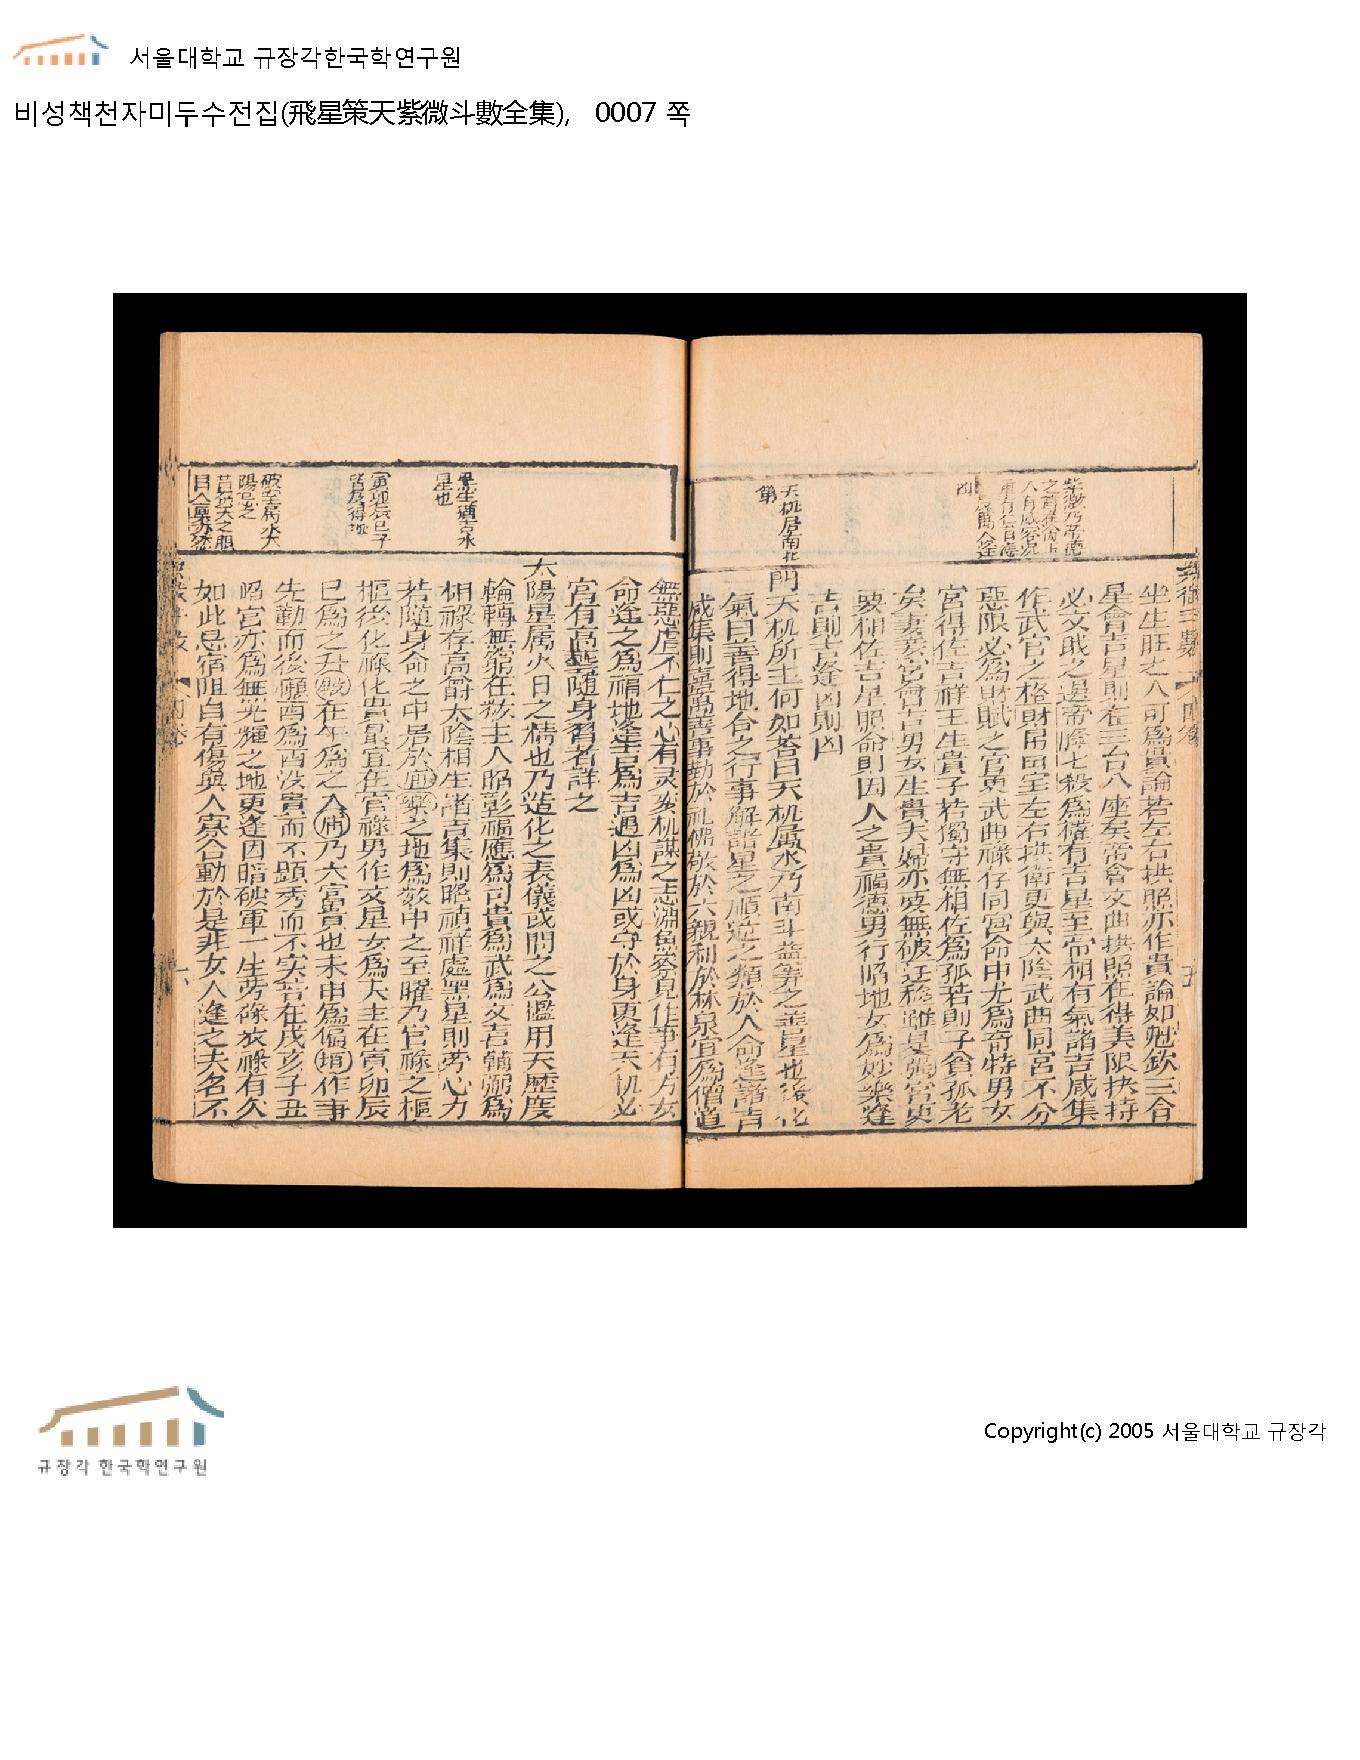 서울대학교 규장각한국학연구원
비성책천자미두수전집(飛星策天紫微斗數全集), 0007 쪽
坐生旺之人可為貴論若左右拱照亦作貴論如魁鉞三合
星會吉星則在三台八座矣帝會文曲拱照在得美限扶持
必文戝之選帝降七殺為權有吉星至帝相有氣諸吉咸集
作武官之格財帛田宅左右拱衛更與太陰武曲同宮不分
惡限必為財賦之官更武曲祿存同宮命中尤為奇特男女
宮得佐吉祥主生貴子若獨守無相佐為孤若則子貧孤老
矣妻妾宮會吉男女生貴夫婦亦要無破迁移雖是強宮更
要相佐吉星照命則因人之貴福德男行陷地女為妙樂逢
吉則吉逢凶則凶
天机居南北
第
門天机所主何如荅曰天机属水乃南斗益筭之善星也後化
氣曰善得地合之行事解諸星之順逆之類於人命逢諸吉
咸集則嘉萬善事勤於礼佛敬於六親利於林泉宜為僧道
無惡虐不仁之心有灵変机謀之志淵魚察見作事有方女
命逢之為福地逢吉為吉遇凶為凶或守於身更逢天机必
宮有高藝隨身習者詳之
太陽星属火日之精也乃造化之表儀或問之公鑑用天歷度
輪轉無窮在數主人昭彰福應為司貴為武為文喜輔弼為
相祿存高爵太陰相生諸吉集則晚禎祥處黑星則劳心力
若隨身命之中居於廟樂之地為数中之至曜乃官祿之樞
樞後化祿化貴最宜在官祿男作文星女為夫主在寅卯辰
巳為之升殿在午為之入廟乃大富貴也未申為偏垣作事
先勤而後懶酉為酉没貴而不顕秀而不实若在戌亥子丑
陷宮亦為無光輝之地更逢因暗破軍一生劳碌衣祿有欠
如此忌宿阻自有傷與人寡合動於是非女人逢之夫名不
黑生猶吉水
星也
寅地辰巳子
皆为得地
破軍為水大
陽忌之
규장각 한국학연구원
Copyright(c) 2005 서울대학교 규장각